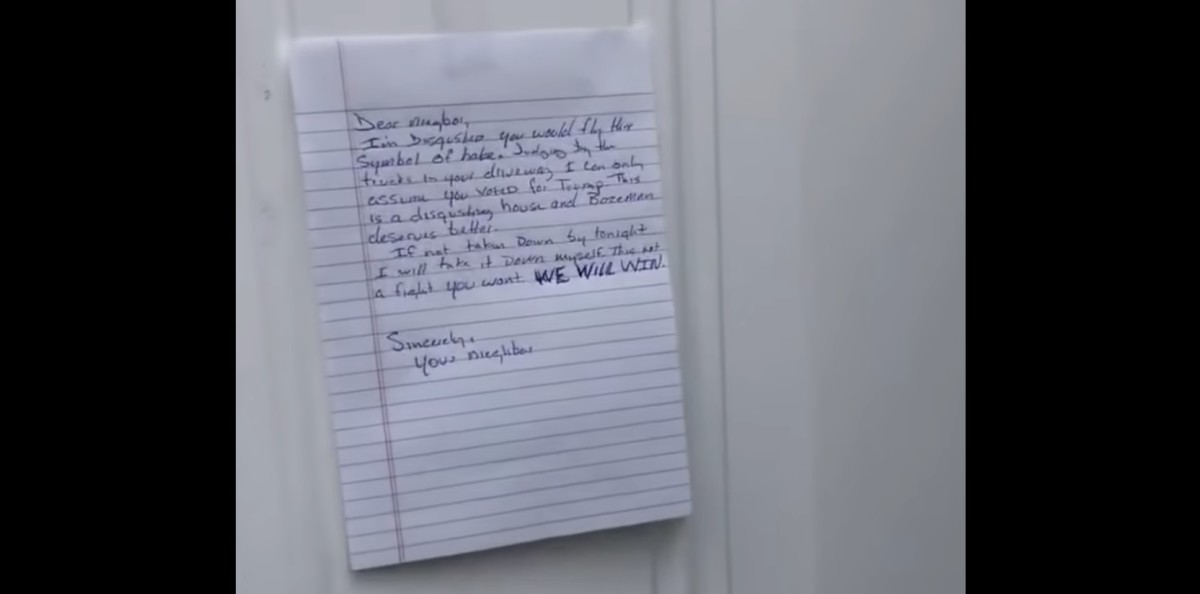 Dear Nieghbor,
I'm Disgusted you would fly this
symbol of hate. Judging by the
trucks in your driveway I can only
assume you voted for Trump. This
is a disgusting house and Bozeman
deserves better.
If not taken Down by tonight
I will take it Down myself. This not
a fight you want WE WILL WIN.
Sincerely,
Your Nieghbor